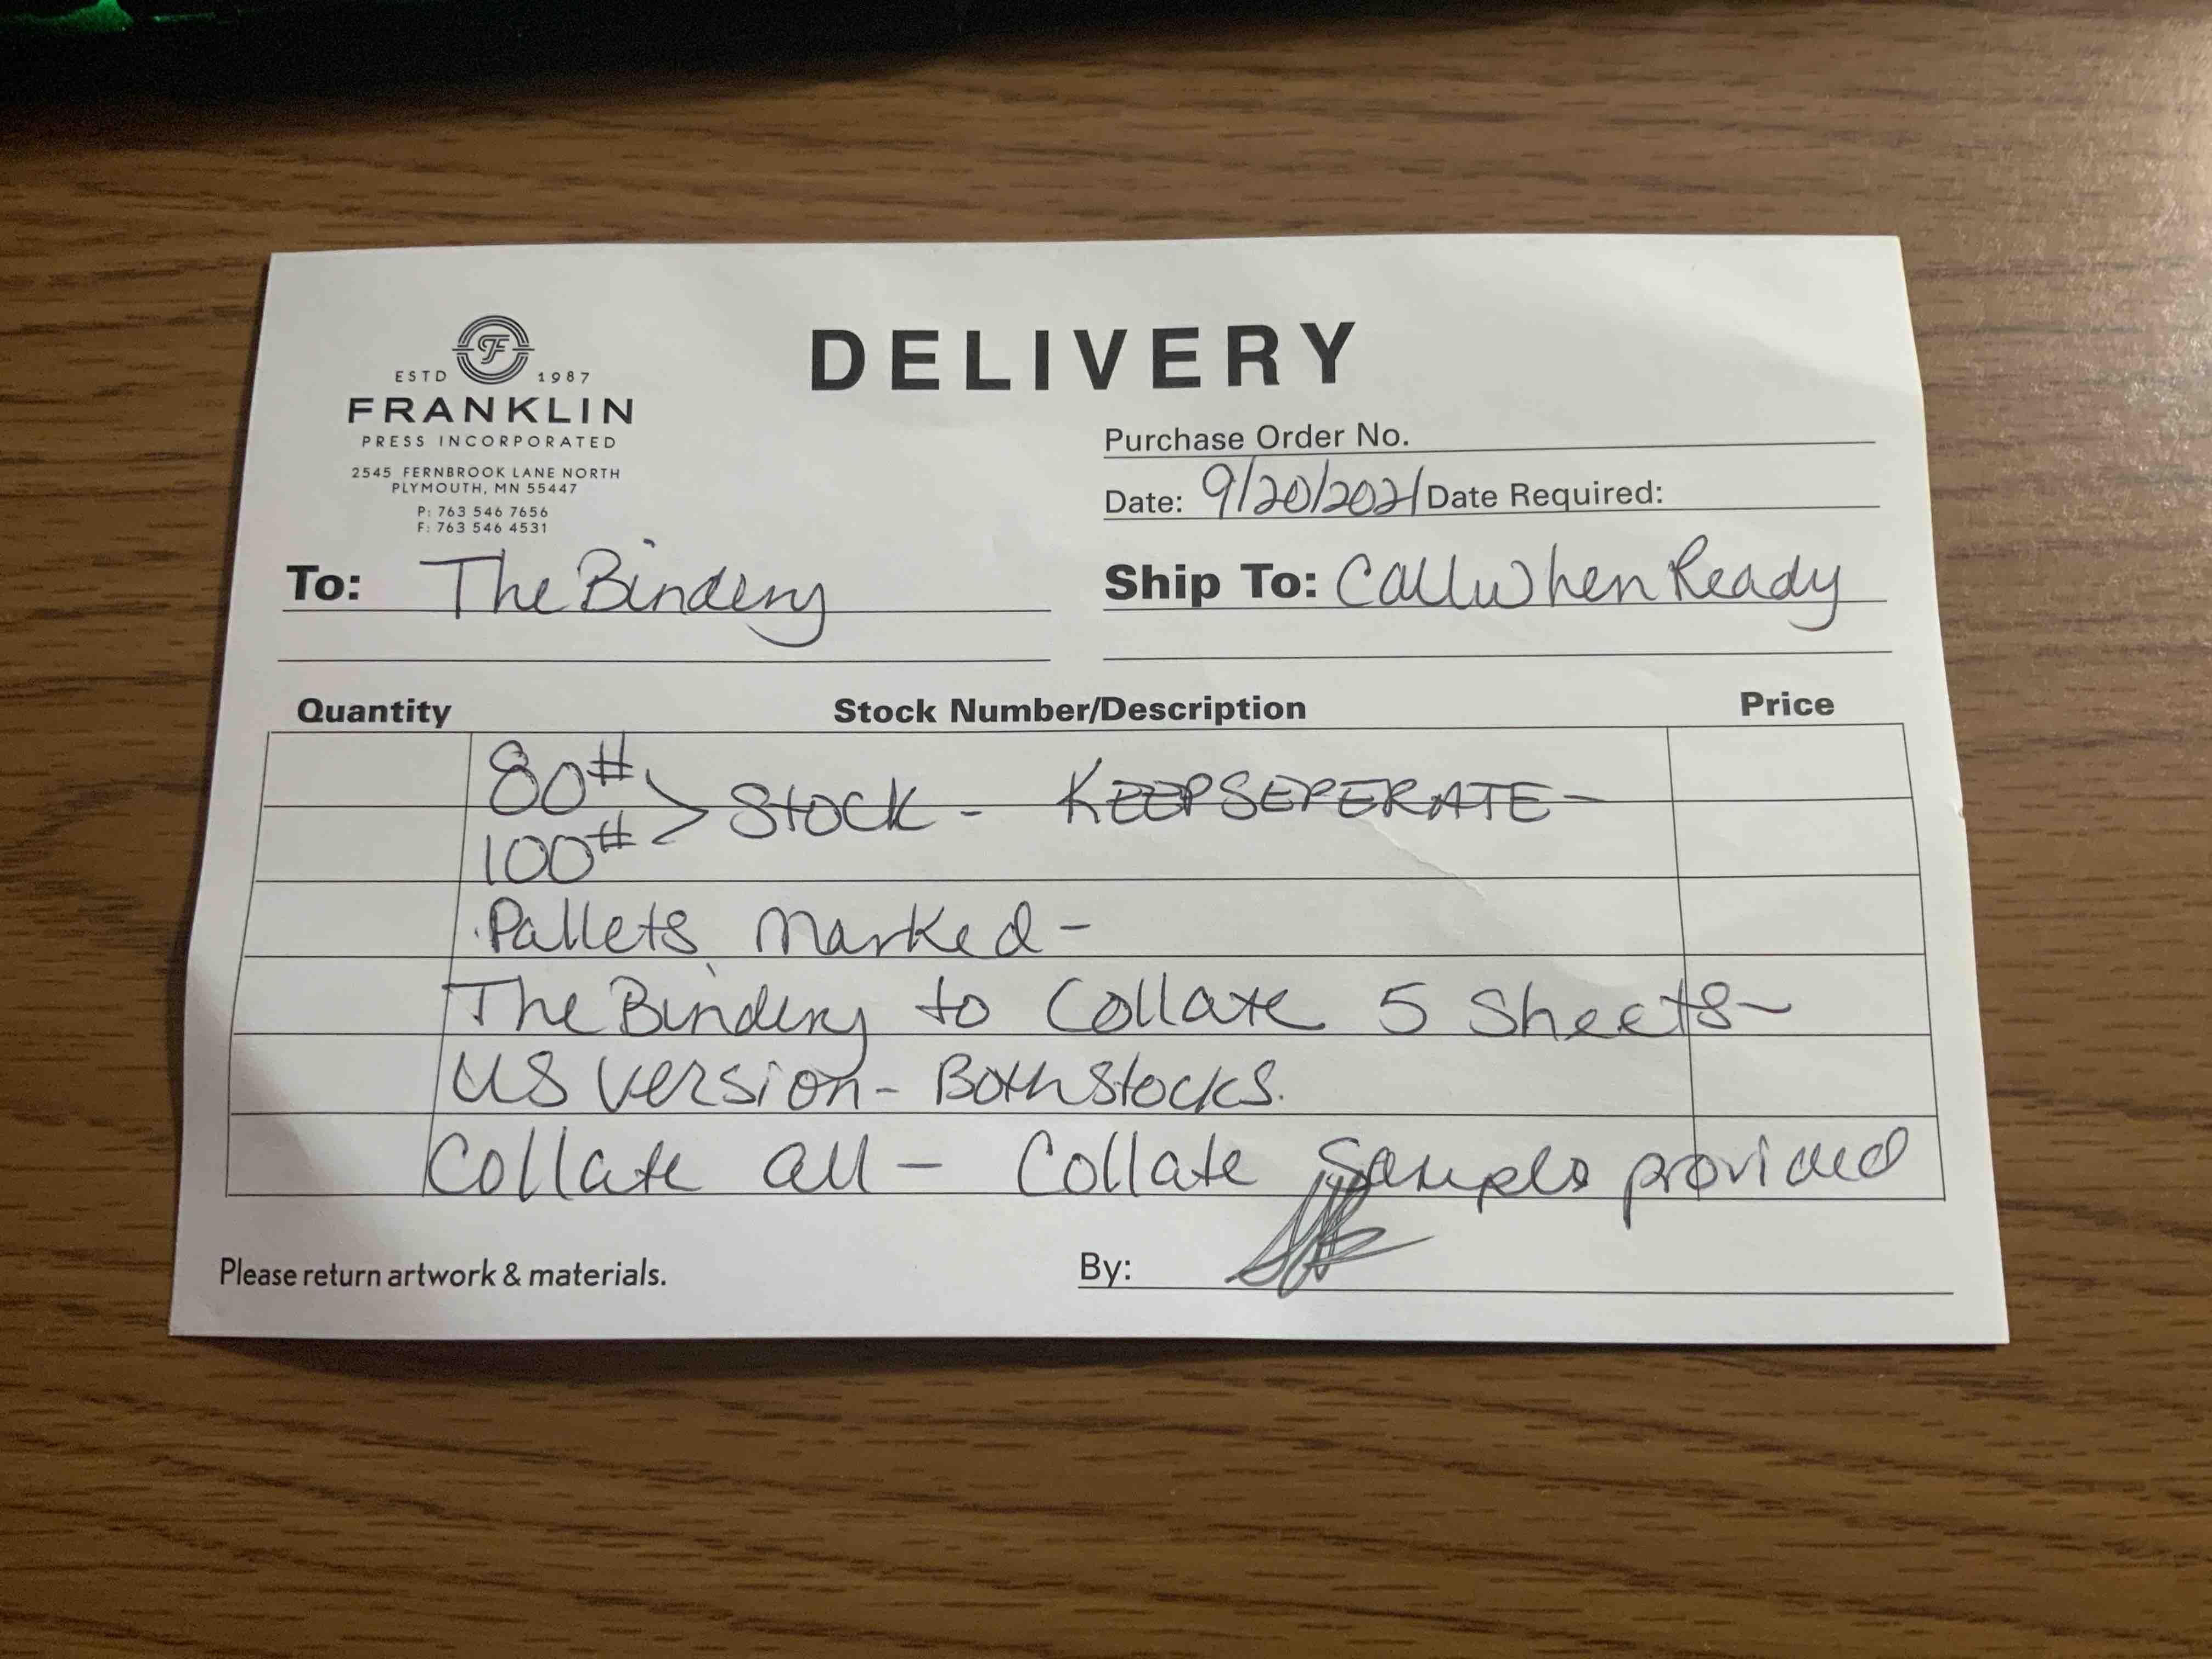 DELIVERY
ESTD 1987
FRANKLIN
PRESS INCORPORATED
2545 FERNBROOK LANE NORTH
PLYMOUTH, MN 55447
P: 763 546 7656
F: 763 546 4531
Purchase Order No.
Date: 9/20/2021 Date Required:
To: The Bindery
Ship To: Call when Ready
Quantity Stock Number/Description Price
80#
100# > Stock - KEEP SEPERATE -
Pallets Marked -
The Bindery to Collate 5 Sheets -
US Version - Both Stocks.
Collate all - Collate Sample provided
Please return artwork & materials.
By: